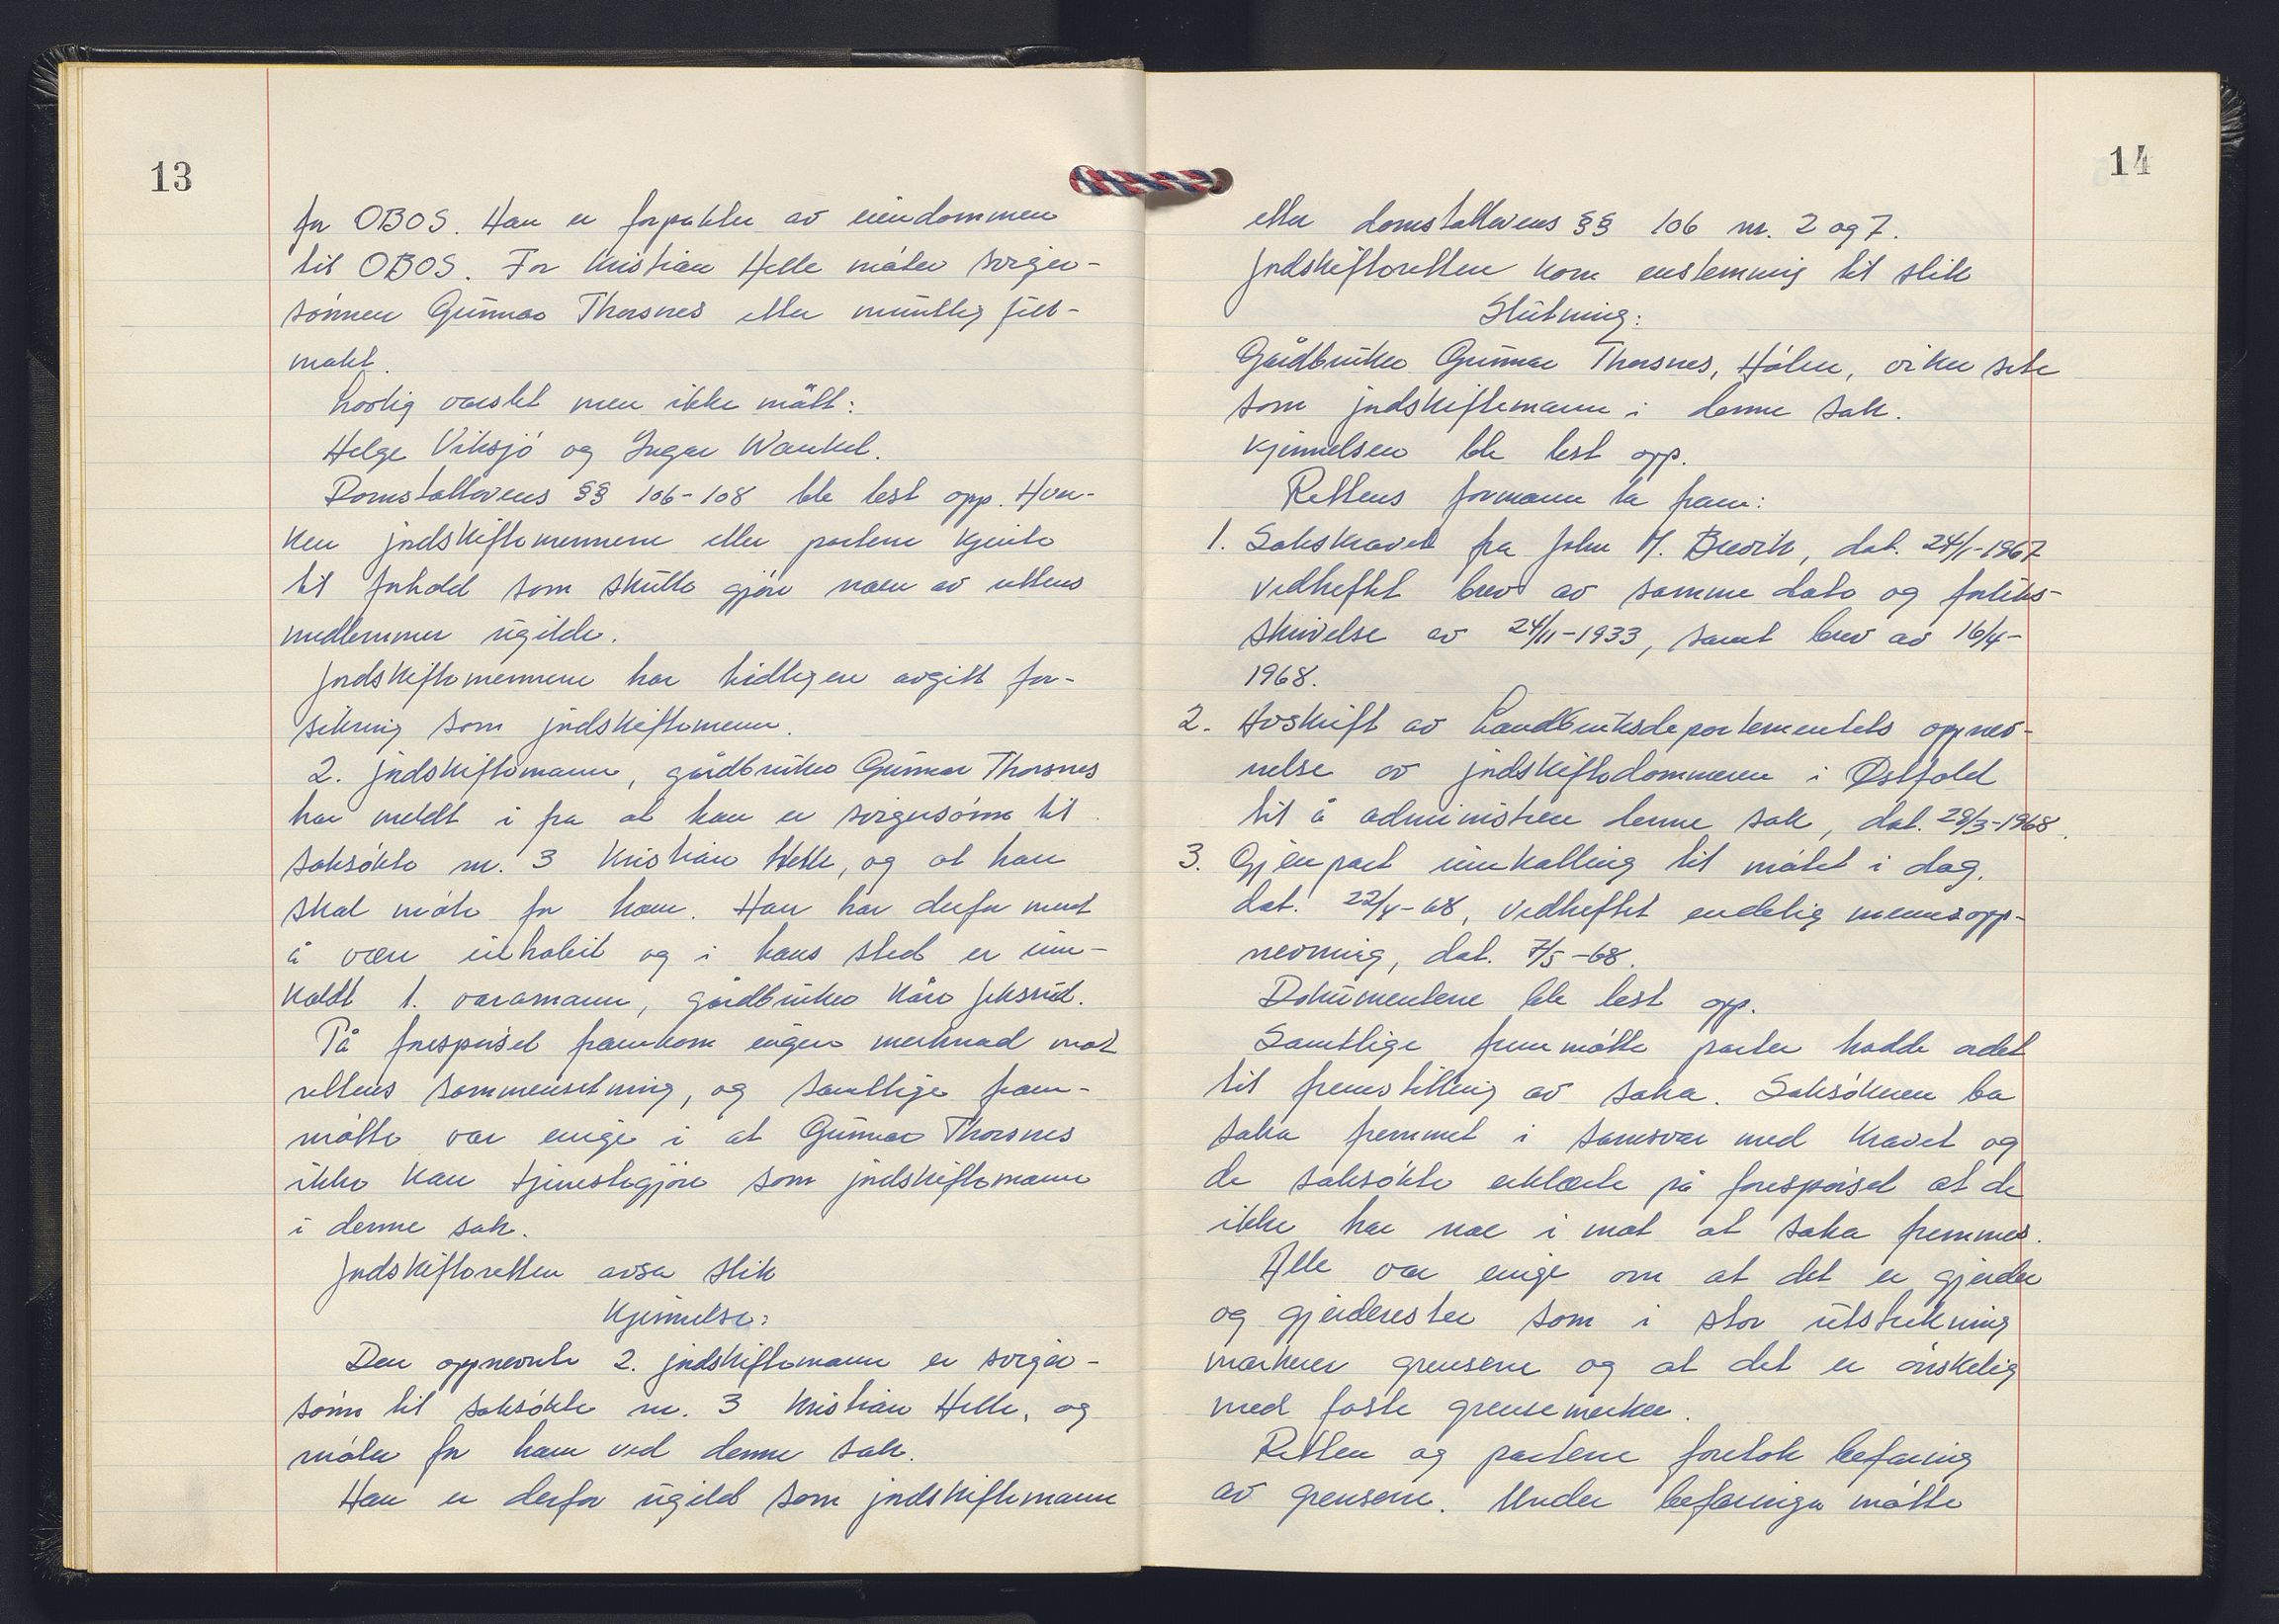 13
for OBOS. Han er forpakter av eiendommen
til OBOS. For Kristian Helle møter sviger-
sønnen Gunnar Thorsnes etter muntlig full-
makt.
Lovlig varslet men ikke møtt:
Helge Viksjø og Ingar Wankel.
Domstollovens §§ 106-108 ble lest opp. Hver-
ken jordskiftemennene eller partene kjente
til forhold som skulle gjøre noen av rettens
medlemmer ugilde.
Jordskiftemennene har tidligere avgitt for-
sikring som jordskiftemenn.
2. jordskiftemann, gårdbruker Gunnar Thorsnes
har meldt i fra at han er svigersønn til
saksøkte nr. 3 Kristian Helle, og at han
skal møte for ham. Han har derfor ment
å være inhabil og i hans sted er inn-
kaldt 1. varamann, gårdbruker Kåre Jeksrud.
På forespørsel framkom ingen merknad mot
rettens sammensetning, og samtlige fram-
møtte var enige i at Gunnar Thorsnes
ikke kan tjenestegjøre som jordskiftemann
i denne sak.
Jordskifteretten avsa slik
Kjennelse:
Den oppnevnte 2. jordskiftemann er sviger-
sønn til saksøkte nr. 3 Kristian Helle, og
møter for ham ved denne sak.
Han er derfor ugild som jordskiftemann
14
etter domstollovens §§ 106 nr. 2 og 7.
Jordskifteretten kom enstemmig til slik
Slutning:
Gårdbruker Gunnar Thorsnes, Hølen, viker sete
som jordskiftemann i denne sak.
Kjennelsen ble lest opp.
Rettens formann la fram:
1. Sakskravet fra John M. Brevik, dat. 24/1-1967
vedheftet brev av samme dato og forliks-
skrivelse av 24/11-1933, samt brev av 16/4-
1968.
2. Avskrift av Landbruksdepartementets oppnev-
nelse av jordskiftedommeren i Østfold
til å administrere denne sak, dat. 28/3-1968.
3. Gjenpart innkalling til møtet i dag.
dat. 22/4-68, vedheftet endelig mennsopp-
nevning, dat. 7/5-68.
Dokumentene ble lest opp.
Samtlige fremmøtte parter hadde ordet
til fremstilling av saka. Saksøkeren ba
saka fremmet i samsvar med kravet og
de saksøkte erklærte på forespørsel at de
ikke har noe i mot at saka fremmes.
Alle var enige om at det er gjerder
og gjerderester som i stor utstrekning
markerer grensene og at det er ønskelig
med faste grensemerker.
Retten og partene foretok befaring
av grensene. Under befaringa møtte